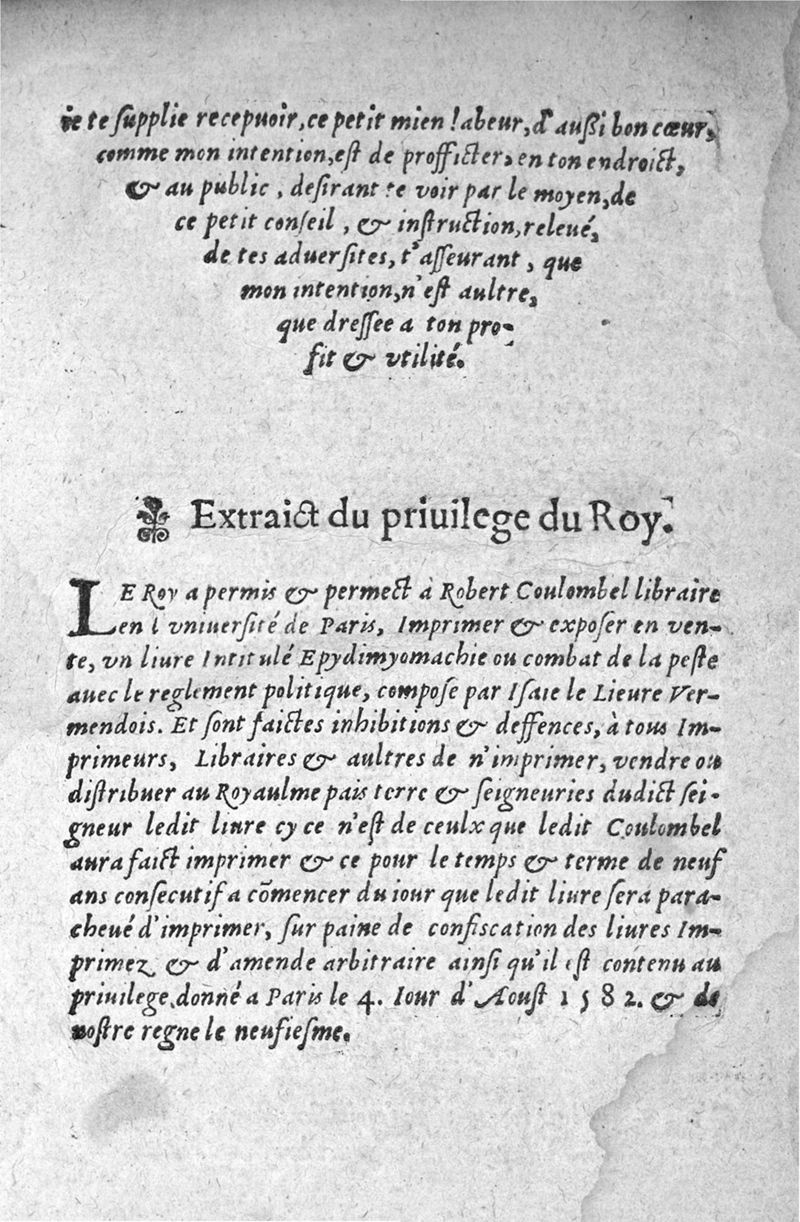 ie te ſupplie recepuoir, ce petit mien labeur, d'auſſi bon cœur,
comme mon intention, eſt de proffićter, en ton endroićt,
& au public, deſirant te voir par le moyen, de
ce petit conſeil, & inſtrućtion, releué,
de tes aduerſites, t'aſſeurant, que
mon intention, n'eſt aultre,
que dreſſee a ton pro-
fit & vtilité.
Extraićt du priuilege du Roy.
LE Roy a permis & permećt à Robert Coulombel libraire
en l'vniuerſité de Paris, Imprimer & expoſer en ven-
te, vn liure Intitulé Epydimyomachie ou combat de la peſte
auec le reglement politique, compoſe par Iſaie le Lieure Ver-
mendois. Et ſont faićtes inhibitions & deffences, à tous Im-
primeurs, Libraires & aultres de n'imprimer, vendre ou
diſtribuer au Royaulme pais terre & ſeigneuries dudićt ſei-
gneur ledit liure cy ce n'eſt de ceulx que ledit Coulombel
aura faićt imprimer & ce pour le temps & terme de neuf
ans conſecutif a cõmencer du iour que ledit liure ſera para-
cheué d'imprimer, ſur paine de confiſcation des liures Im-
primez & d'amende arbitraire ainſi qu'il eſt contenu au
priuilege, donné a Paris le 4. Iour d'Aouſt 1582. & de
noſtre regne le neufieſme.